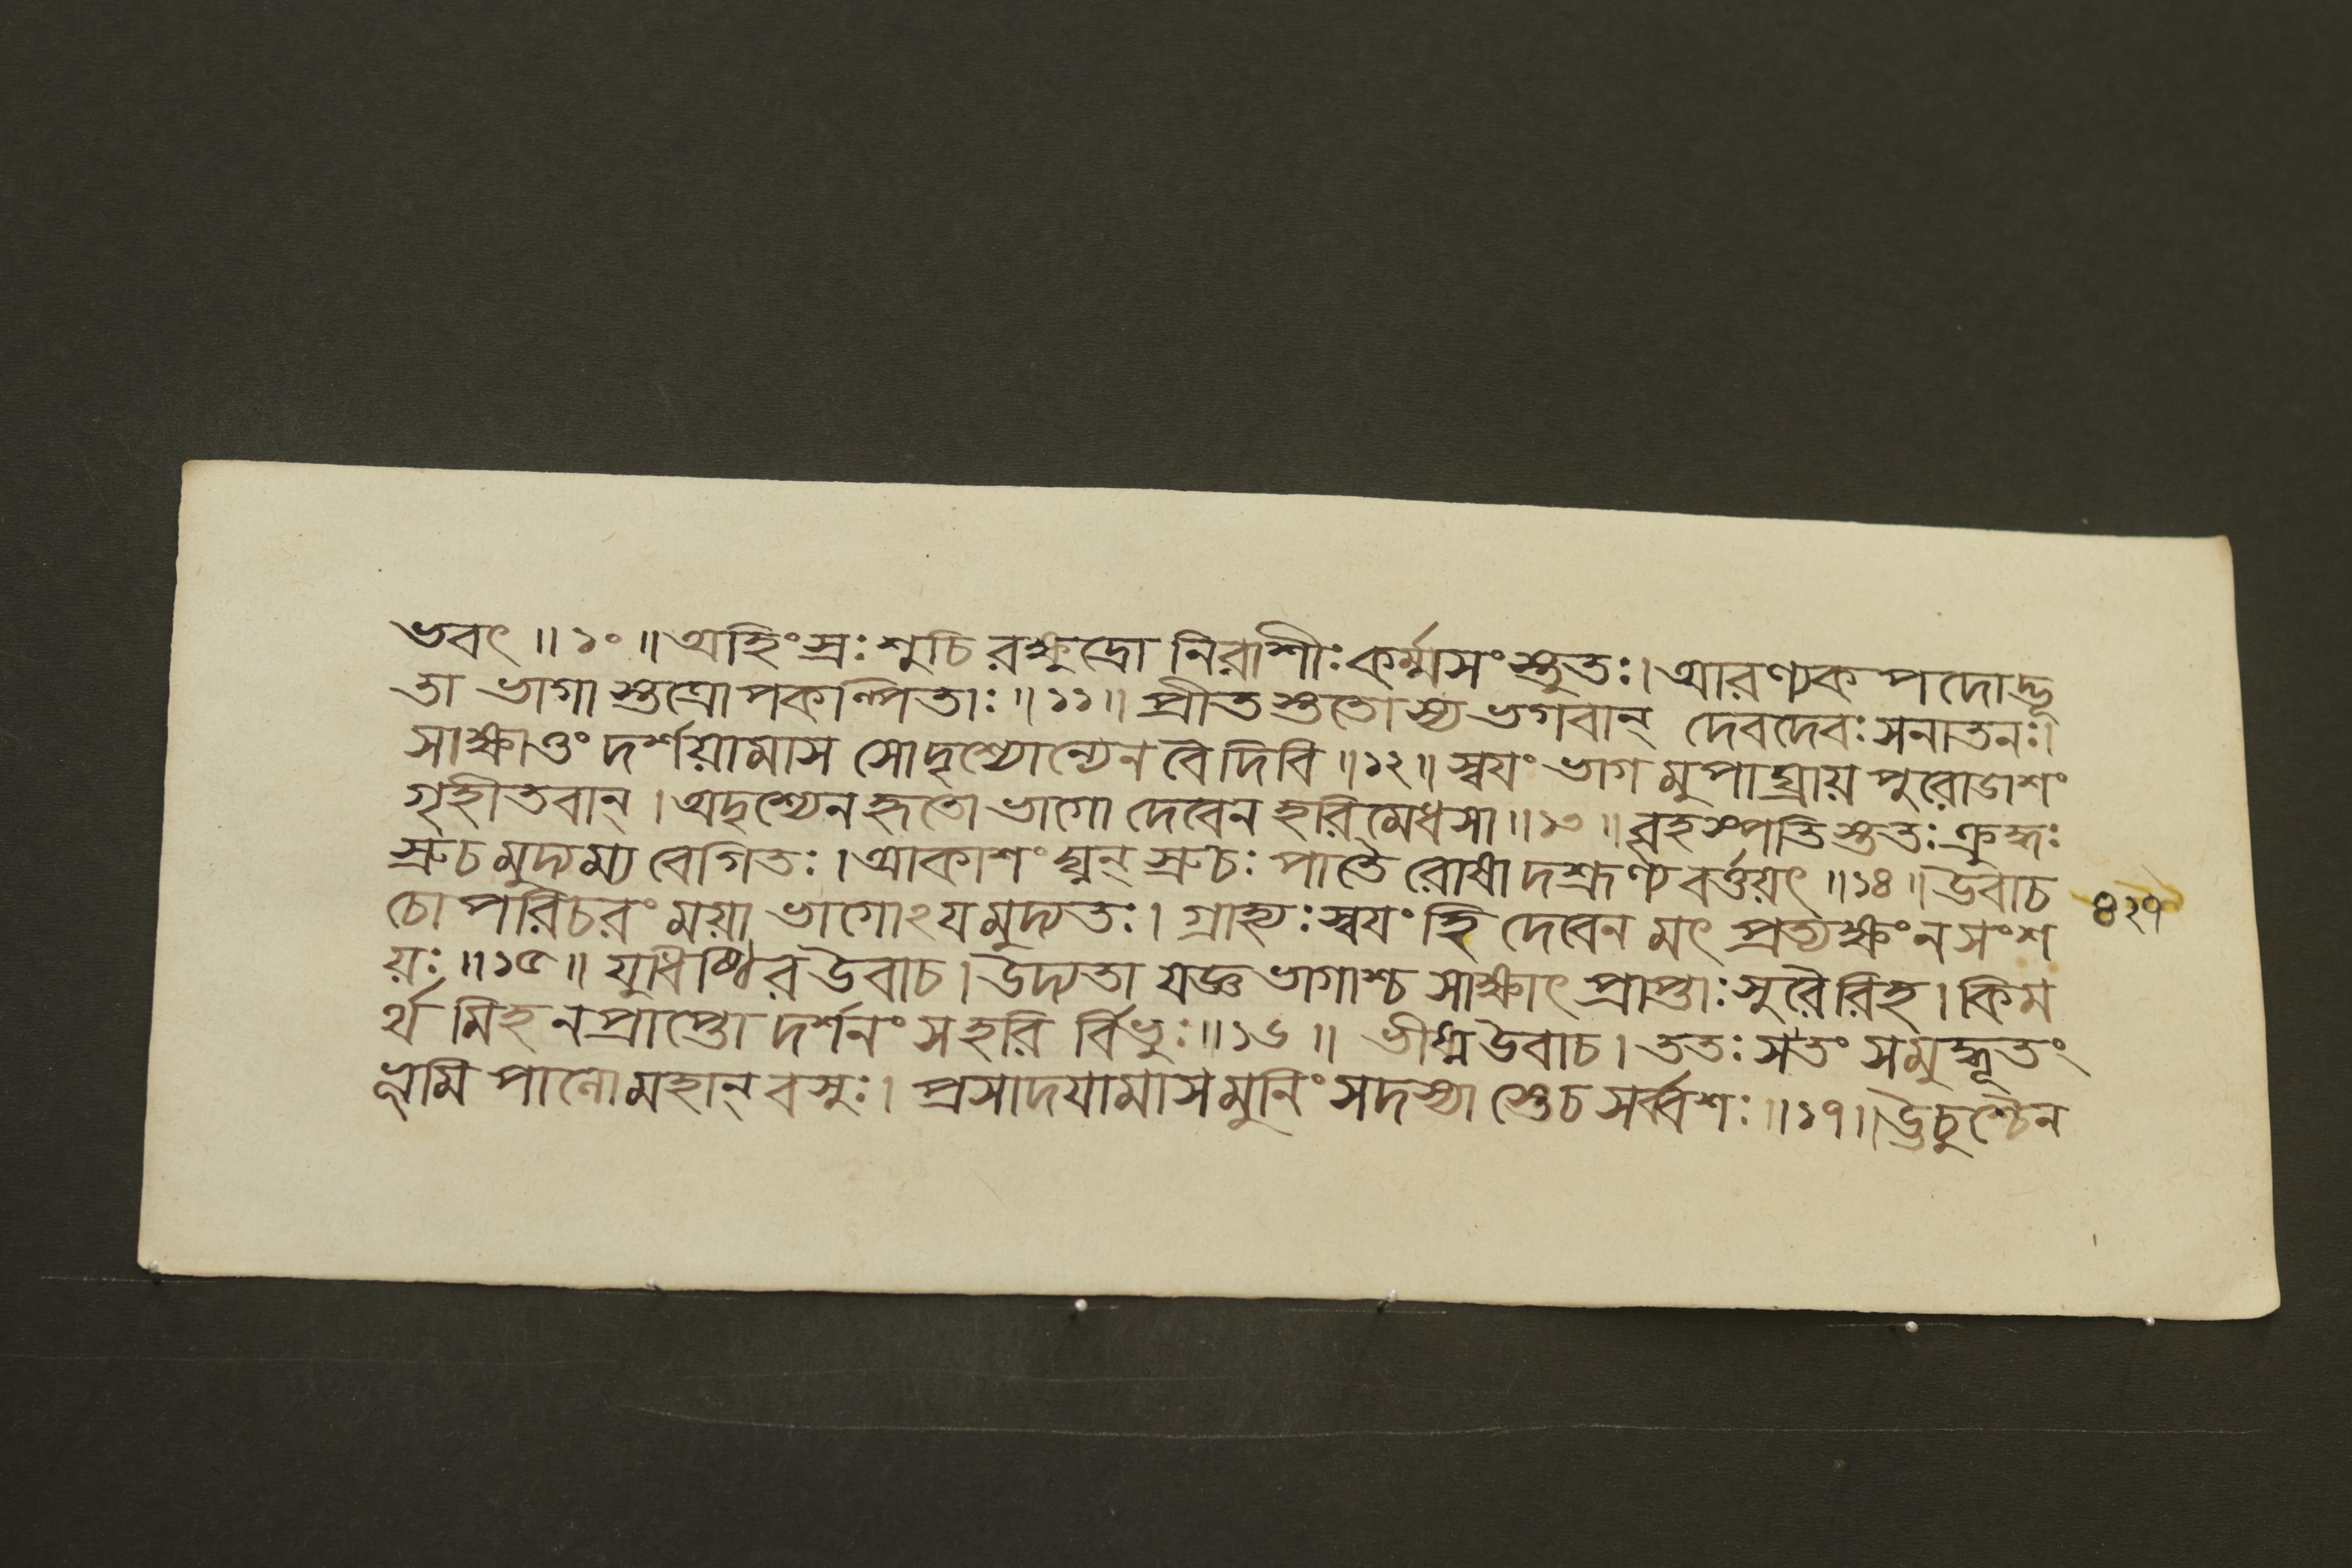 ভবৎ ॥ ১০ ॥ অহিংস্রঃ শুচি রক্ষুদ্রো নিরাশীঃ কর্ম্মসংস্তুতঃ। আরণ্যক পদোদ্ভূ
তা ভাগা স্তত্রোপকল্পিতাঃ ॥ ১১ ॥ প্রীত স্ততো স্য ভগবান্ দেবদেবঃ সনাতনঃ।
সাক্ষাত্তং দর্শয়ামাস সোদৃশ্যোন্যেন বৈ দিবি ॥ ১২ ॥ স্বযং ভাগ মুপাঘ্রায় পুরোডাশং
গৃহীতবান্ । অদৃশ্যেন হৃতো ভাগো দেবেন হরিমেধসা ॥ ১৩ ॥ বৃহস্পতি স্ততঃ ক্রুদ্ধঃ
স্রুচ মুদ্যম্য বেগিতঃ । আকাশং ঘ্নন্ স্রুচঃ পাতৈ রোষা দশ্রূণ্য বর্ত্তয়ৎ ॥ ১৪ ॥ উবাচ
চোপরিচরং ময়া ভাগোঽযমুদ্যতঃ। গ্রাহ্যঃ স্বযং হি দেবেন মৎ প্রত্যক্ষং ন সংশ
৪২৭
য়ঃ ॥ ১৫ ॥ যুধিষ্ঠির উবাচ । উদ্যতা যজ্ঞ ভাগাশ্চ সাক্ষাৎ প্রাপ্তাঃ সুরৈরিহ । কিম
র্থ মিহ ন প্রাপ্তো দর্শনং স হরি র্বিভুঃ ॥ ১৬ ॥ ভীষ্ম উবাচ । ততঃ স তং সমুদ্ধূতং
ভূমি পালো মহান্ বসুঃ । প্রসাদযামাস মুনিং সদস্যা স্তেচ সর্ব্বশঃ ॥ ১৭ ॥ ঊচুশ্চৈন